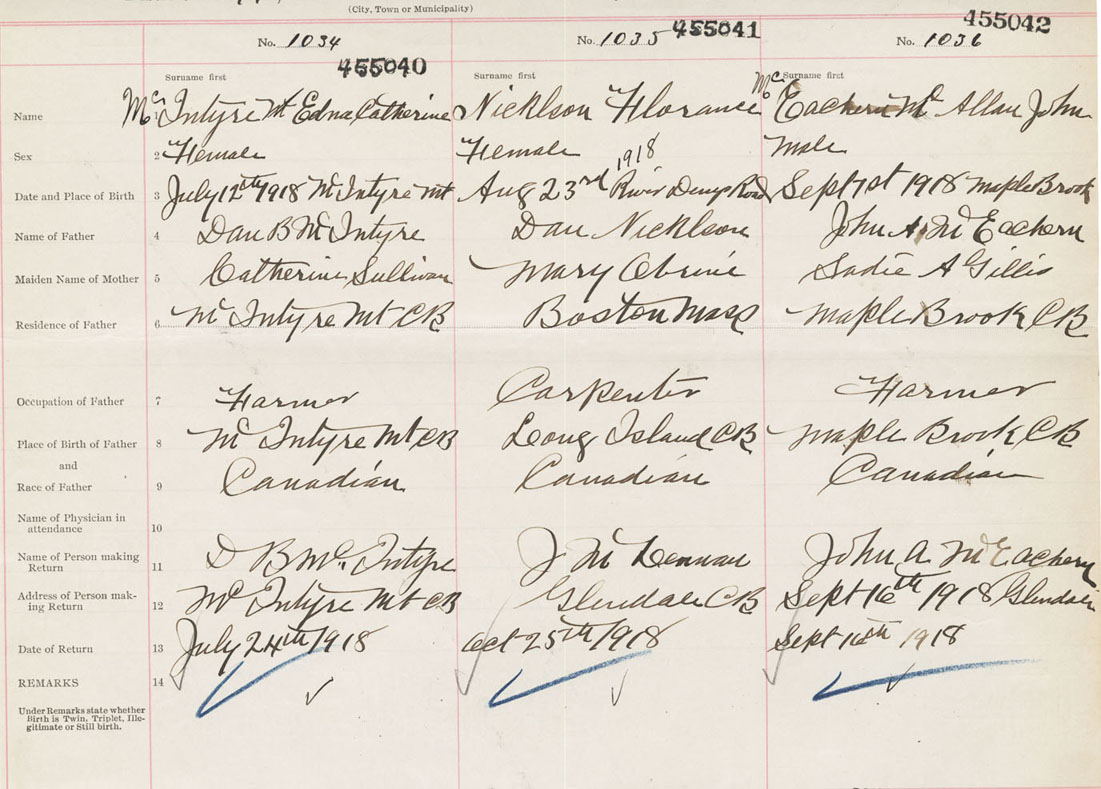 (City, Town or Municipality)
No. 1034 No. 1035 455041 No. 1036 455042
455040
Surname first Surname first Surname first
Name 1 McIntyre Mt Edna Catherine Nicklson Florance McEachern Mc Allan John
Sex 2 Female Female Male
1918
Date and Place of Birth 3 July 12th 1918 McIntyre Mt Aug 23rd River Denys Road Sept 1st 1918 Maple Brook
Name of Father 4 Dan B McIntyre Dan Nicklson John A. McEachern
Maiden Name of Mother 5 Catherine Sullivan Mary Obrine Sadie A Gillis
Residence of Father 6 McIntyre Mt CB Boston Mass Maple Brook CB
Occupation of Father 7 Farmer Carpenter Farmer
Place of Birth of Father 8 McIntyre Mt CB Long Island CB Maple Brook CB
and
Race of Father 9 Canadian Canadian Canadian
Name of Physician in
attendance 10
Name of Person making
Return 11 D B McIntyre J McLennan John A. McEachern
Address of Person mak-
ing Return 12 McIntyre Mt CB Glendale CB Sept 16th 1918 Glendale
Date of Return 13 July 24th 1918 Oct 25th 1918 Sept 16th 1918
REMARKS 14
Under Remarks state whether
Birth is Twin, Triplet, Ille-
gitimate or Still birth.